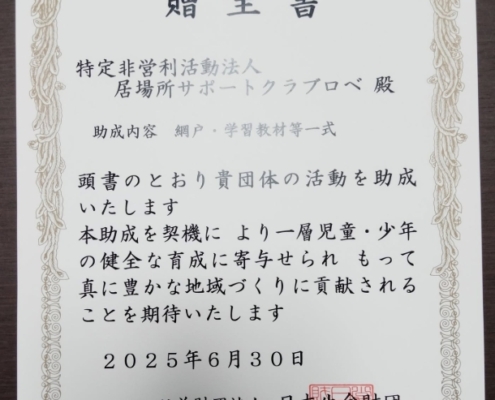 贈呈書
特定非営利活動法人
居場所サポートクラブロベ 殿
助成内容 網戸・学習教材等一式
頭書のとおり貴団体の活動を助成
いたします
本助成を契機に より一層児童・少年
の健全な育成に寄与せられ もって
真に豊かな地域づくりに貢献される
ことを期待いたします
2025年6月30日
日本生命財団